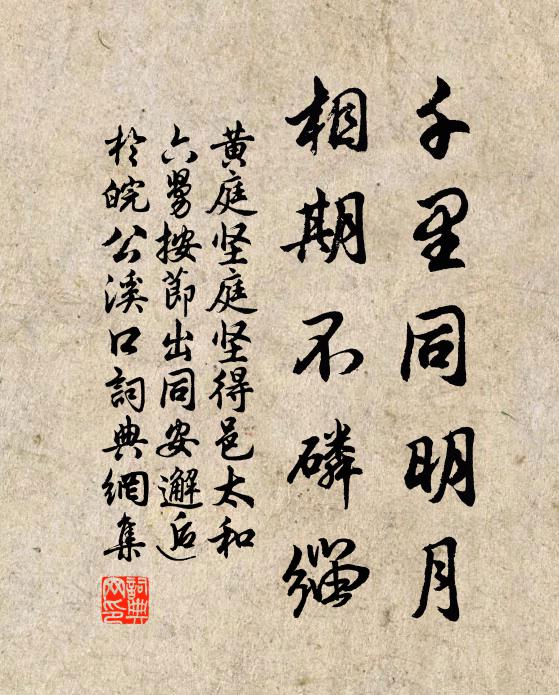 千里同明月
相期不磷缁
黄庭坚庭坚得邑太和
六舅按節出同安邂逅
於皖公溪口詞典網集
詞典網印